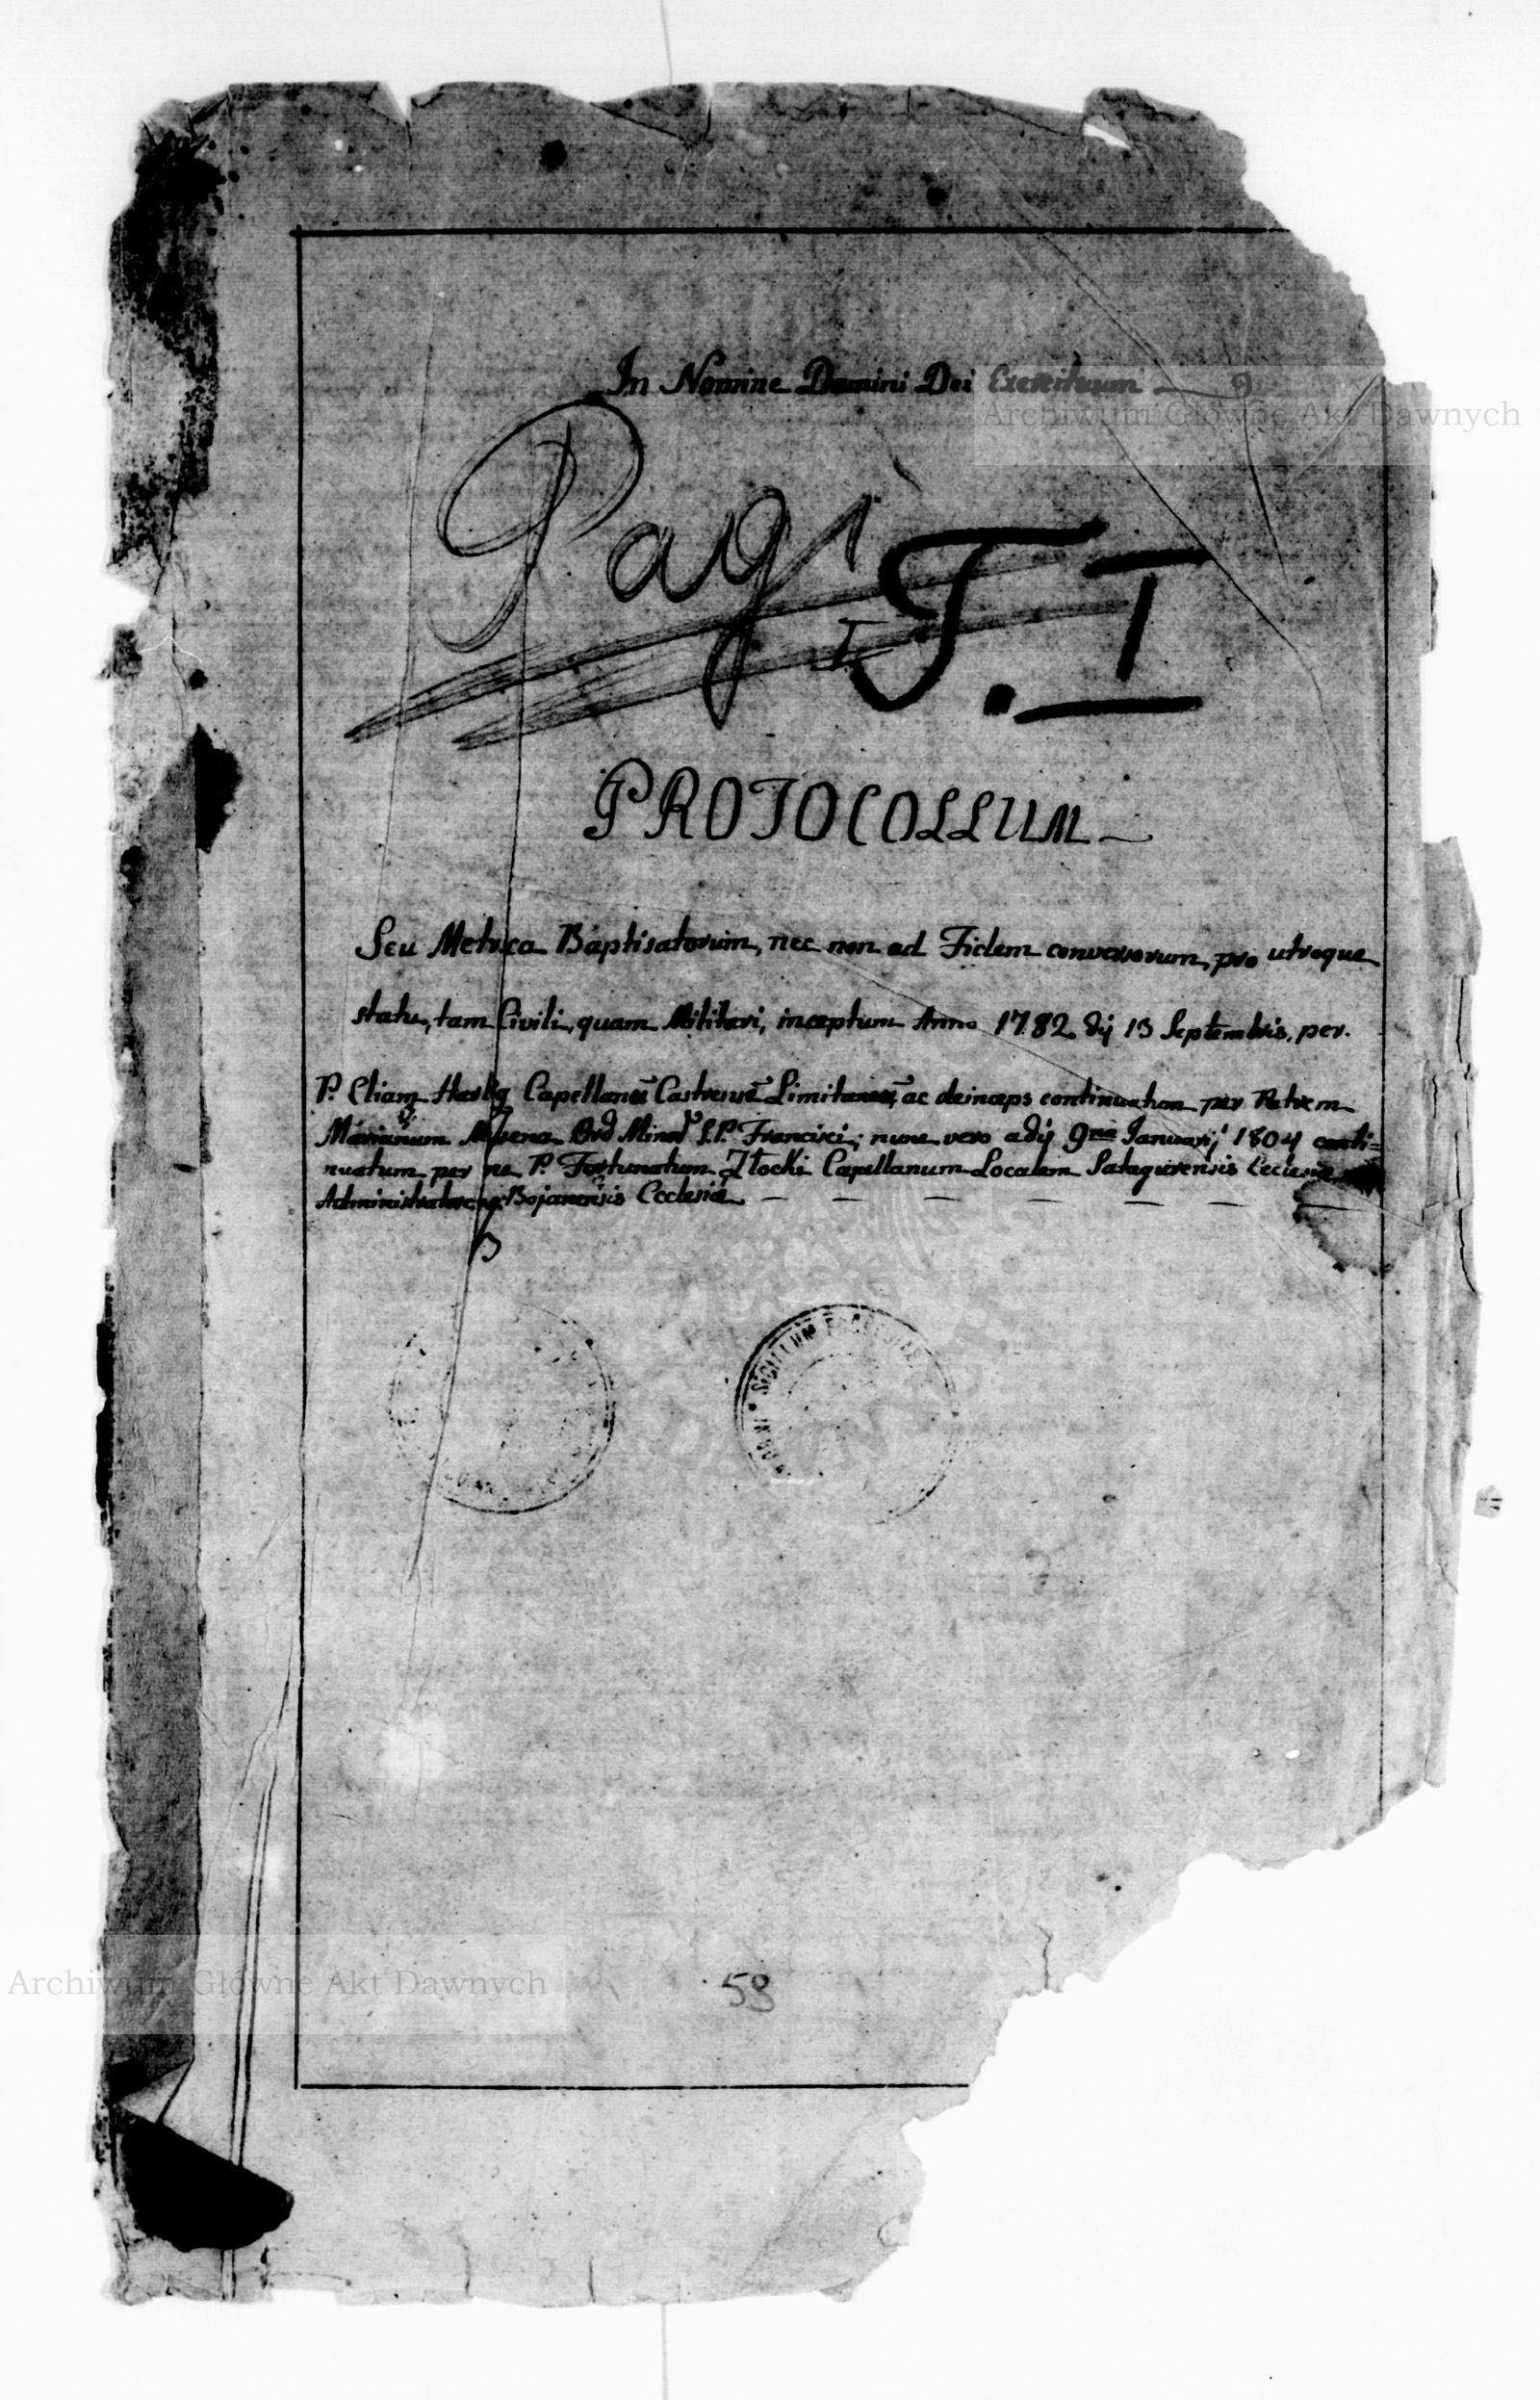 In Nomine Domini Dei Exercituum
Archiwum Główne Akt Dawnych
Pag 1
I
T. I
PROTOCOLLUM
Seu Metrica Baptisatorum, nec non ad Fidem conversorum, pro utroque
statu, tam Civili, quam Militari, inceptum Anno 1782 dij 13 Septembris, per
P. Eliam Capellanū Castrensē Limitaneū, ac deinceps continuatum per Patrem
Marianum Ord Minor S. P. Francisci; nunc vero a dij 9na Januarij 1804 conti=
nuatum per me P. Fortunatum Złocki Capellanum Localem Sadagurensis Ecclesiæ
Administratoremq; Bojanensis Ecclesiæ
SIGILLUM
Archiwum Główne Akt Dawnych
58